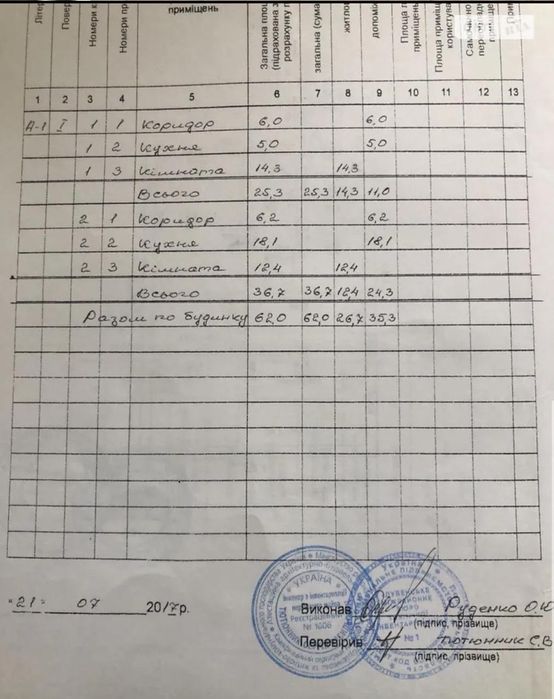 Літе
Повер
Номери к
Номери пр
приміщень
Загальна площ
(підрахована з
розрахунку п
загальна (сума
житлов
допоміж
Площа п
приміщень
Площа приміщ
користува
Самочинно
13
1 2 3 4 5 6 7 8 9 10 11 12 13
А-1 I 1 1 Коридор 6,0 6,0
1 2 Кухня 5,0 5,0
1 3 Кімната 14,3 14,3
Всього 25,3 25,3 14,3 11,0
2 1 Коридор 6,2 6,2
2 2 Кухня 18,1 18,1
2 3 Кімната 12,4 12,4
Всього 36,7 36,7 12,4 24,3
Разом по будинку 62,0 62,0 26,7 35,3
УКРАЇНА
№ 1606
Україна
№ 1
"21" 07 2017р.
Виконав Руденко О.Ю
(підпис, прізвище)
Перевірив Потюнник С.В
(підпис, прізвище)